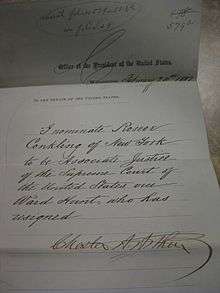 Office of the President of the United States.
TO THE SENATE OF THE UNITED STATES.
I nominate Roscoe
Conkling of New York
to be Associate Justice
of the Supreme Court of
the United States vice
Ward Hunt, who has
resigned
Chester A. Arthur